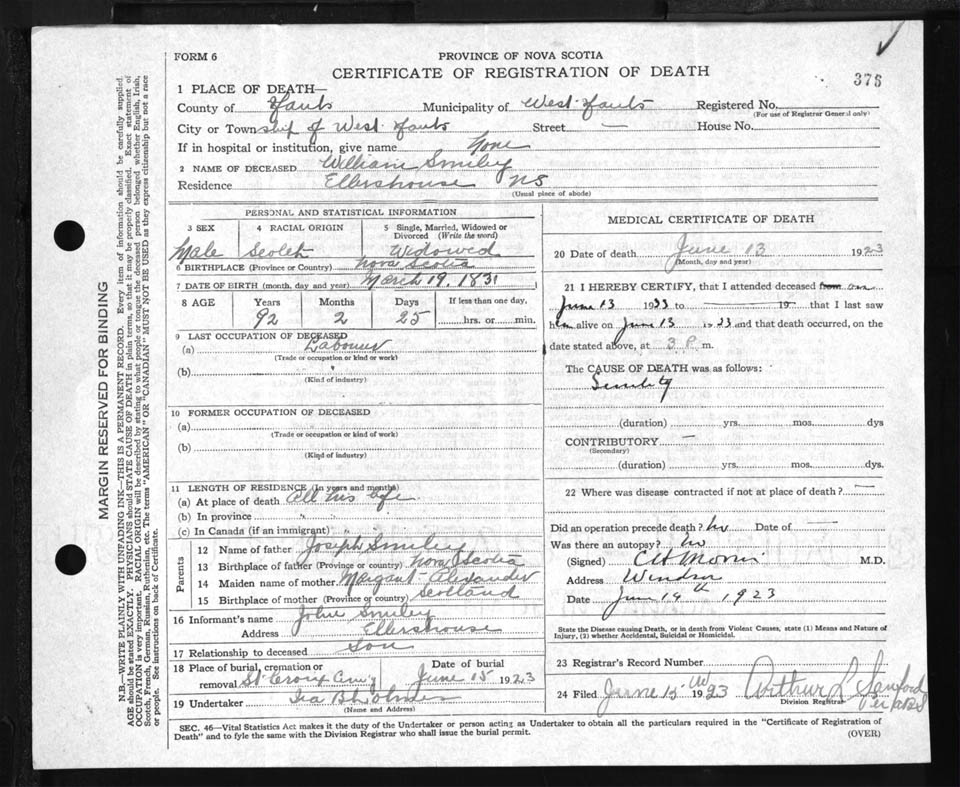 FORM 6
PROVINCE OF NOVA SCOTIA
CERTIFICATE OF REGISTRATION OF DEATH
376
1 PLACE OF DEATH—
County of Hants Municipality of West Hants Registered No.
(For use of Registrar General only)
City or Township of West Hants Street — House No.
If in hospital or institution, give name None
2 NAME OF DECEASED William Smiley
Residence Ellershouse NS
(Usual place of abode)
PERSONAL AND STATISTICAL INFORMATION
3 SEX 4 RACIAL ORIGIN 5 Single, Married, Widowed or Divorced (Write the word)
Male Scotch Widowed
6 BIRTHPLACE (Province or Country) Nova Scotia
7 DATE OF BIRTH (month, day and year) March 19, 1831
8 AGE Years Months Days If less than one day,
92 2 25 hrs. or min.
9 LAST OCCUPATION OF DECEASED
(a) Labourer
(Trade or occupation or kind or work)
(b)
(Kind of industry)
10 FORMER OCCUPATION OF DECEASED
(a)
(Trade or occupation or kind of work)
(b)
(Kind of industry)
11 LENGTH OF RESIDENCE (In years and months)
(a) At place of death All his life
(b) In province " "
(c) In Canada (if an immigrant) " "
Parents
12 Name of father Joseph Smiley
13 Birthplace of father (Province or country) Nova Scotia
14 Maiden name of mother Margaret Alexander
15 Birthplace of mother (Province or country) Scotland
16 Informant's name John Smiley
Address Ellershouse
17 Relationship to deceased Son
18 Place of burial, cremation or Date of burial
removal St Croix June 15 1923
19 Undertaker Ira B
(Name and Address)
MEDICAL CERTIFICATE OF DEATH
20 Date of death June 13 1923
(Month, day and year)
21 I HEREBY CERTIFY, that I attended deceased from on
June 13 1923 to 19 that I last saw
him alive on June 13 1923 and that death occurred, on the
date stated above, at 3 P m.
The CAUSE OF DEATH was as follows:
Senility
(duration) yrs. mos. dys
CONTRIBUTORY —
(Secondary)
(duration) yrs. mos. dys.
22 Where was disease contracted if not at place of death? —
Did an operation precede death? No Date of —
Was there an autopsy? No
(Signed) M.D.
Address Windsor
Date June 14th 1923
State the Disease causing Death, or in death from Violent Causes, state (1) Means and Nature of
Injury, (2) whether Accidental, Suicidal or Homicidal.
23 Registrar's Record Number
24 Filed June 15 1923 Arthur Sanford
Division Registrar
SEC. 46—Vital Statistics Act makes it the duty of the Undertaker or person acting as Undertaker to obtain all the particulars required in the "Certificate of Registration of
Death" and to fyle the same with the Division Registrar who shall issue the burial permit.
(OVER)
MARGIN RESERVED FOR BINDING
N.B.—WRITE PLAINLY WITH UNFADING INK—THIS IS A PERMANENT RECORD. Every item of information should be carefully supplied.
AGE should be stated EXACTLY. PHYSICIANS should STATE CAUSE OF DEATH in plain terms, so that it may be properly classified. Exact statement of
OCCUPATION is very important. RACIAL ORIGIN will be described by stating to what people or tongue the deceased person belonged whether English, Irish,
Scotch, French, German, Russian, Ruthenian, etc. The terms "AMERICAN" OR "CANADIAN" MUST NOT BE USED as they express citizenship but not a race
or people. See instructions on back of Certificate.